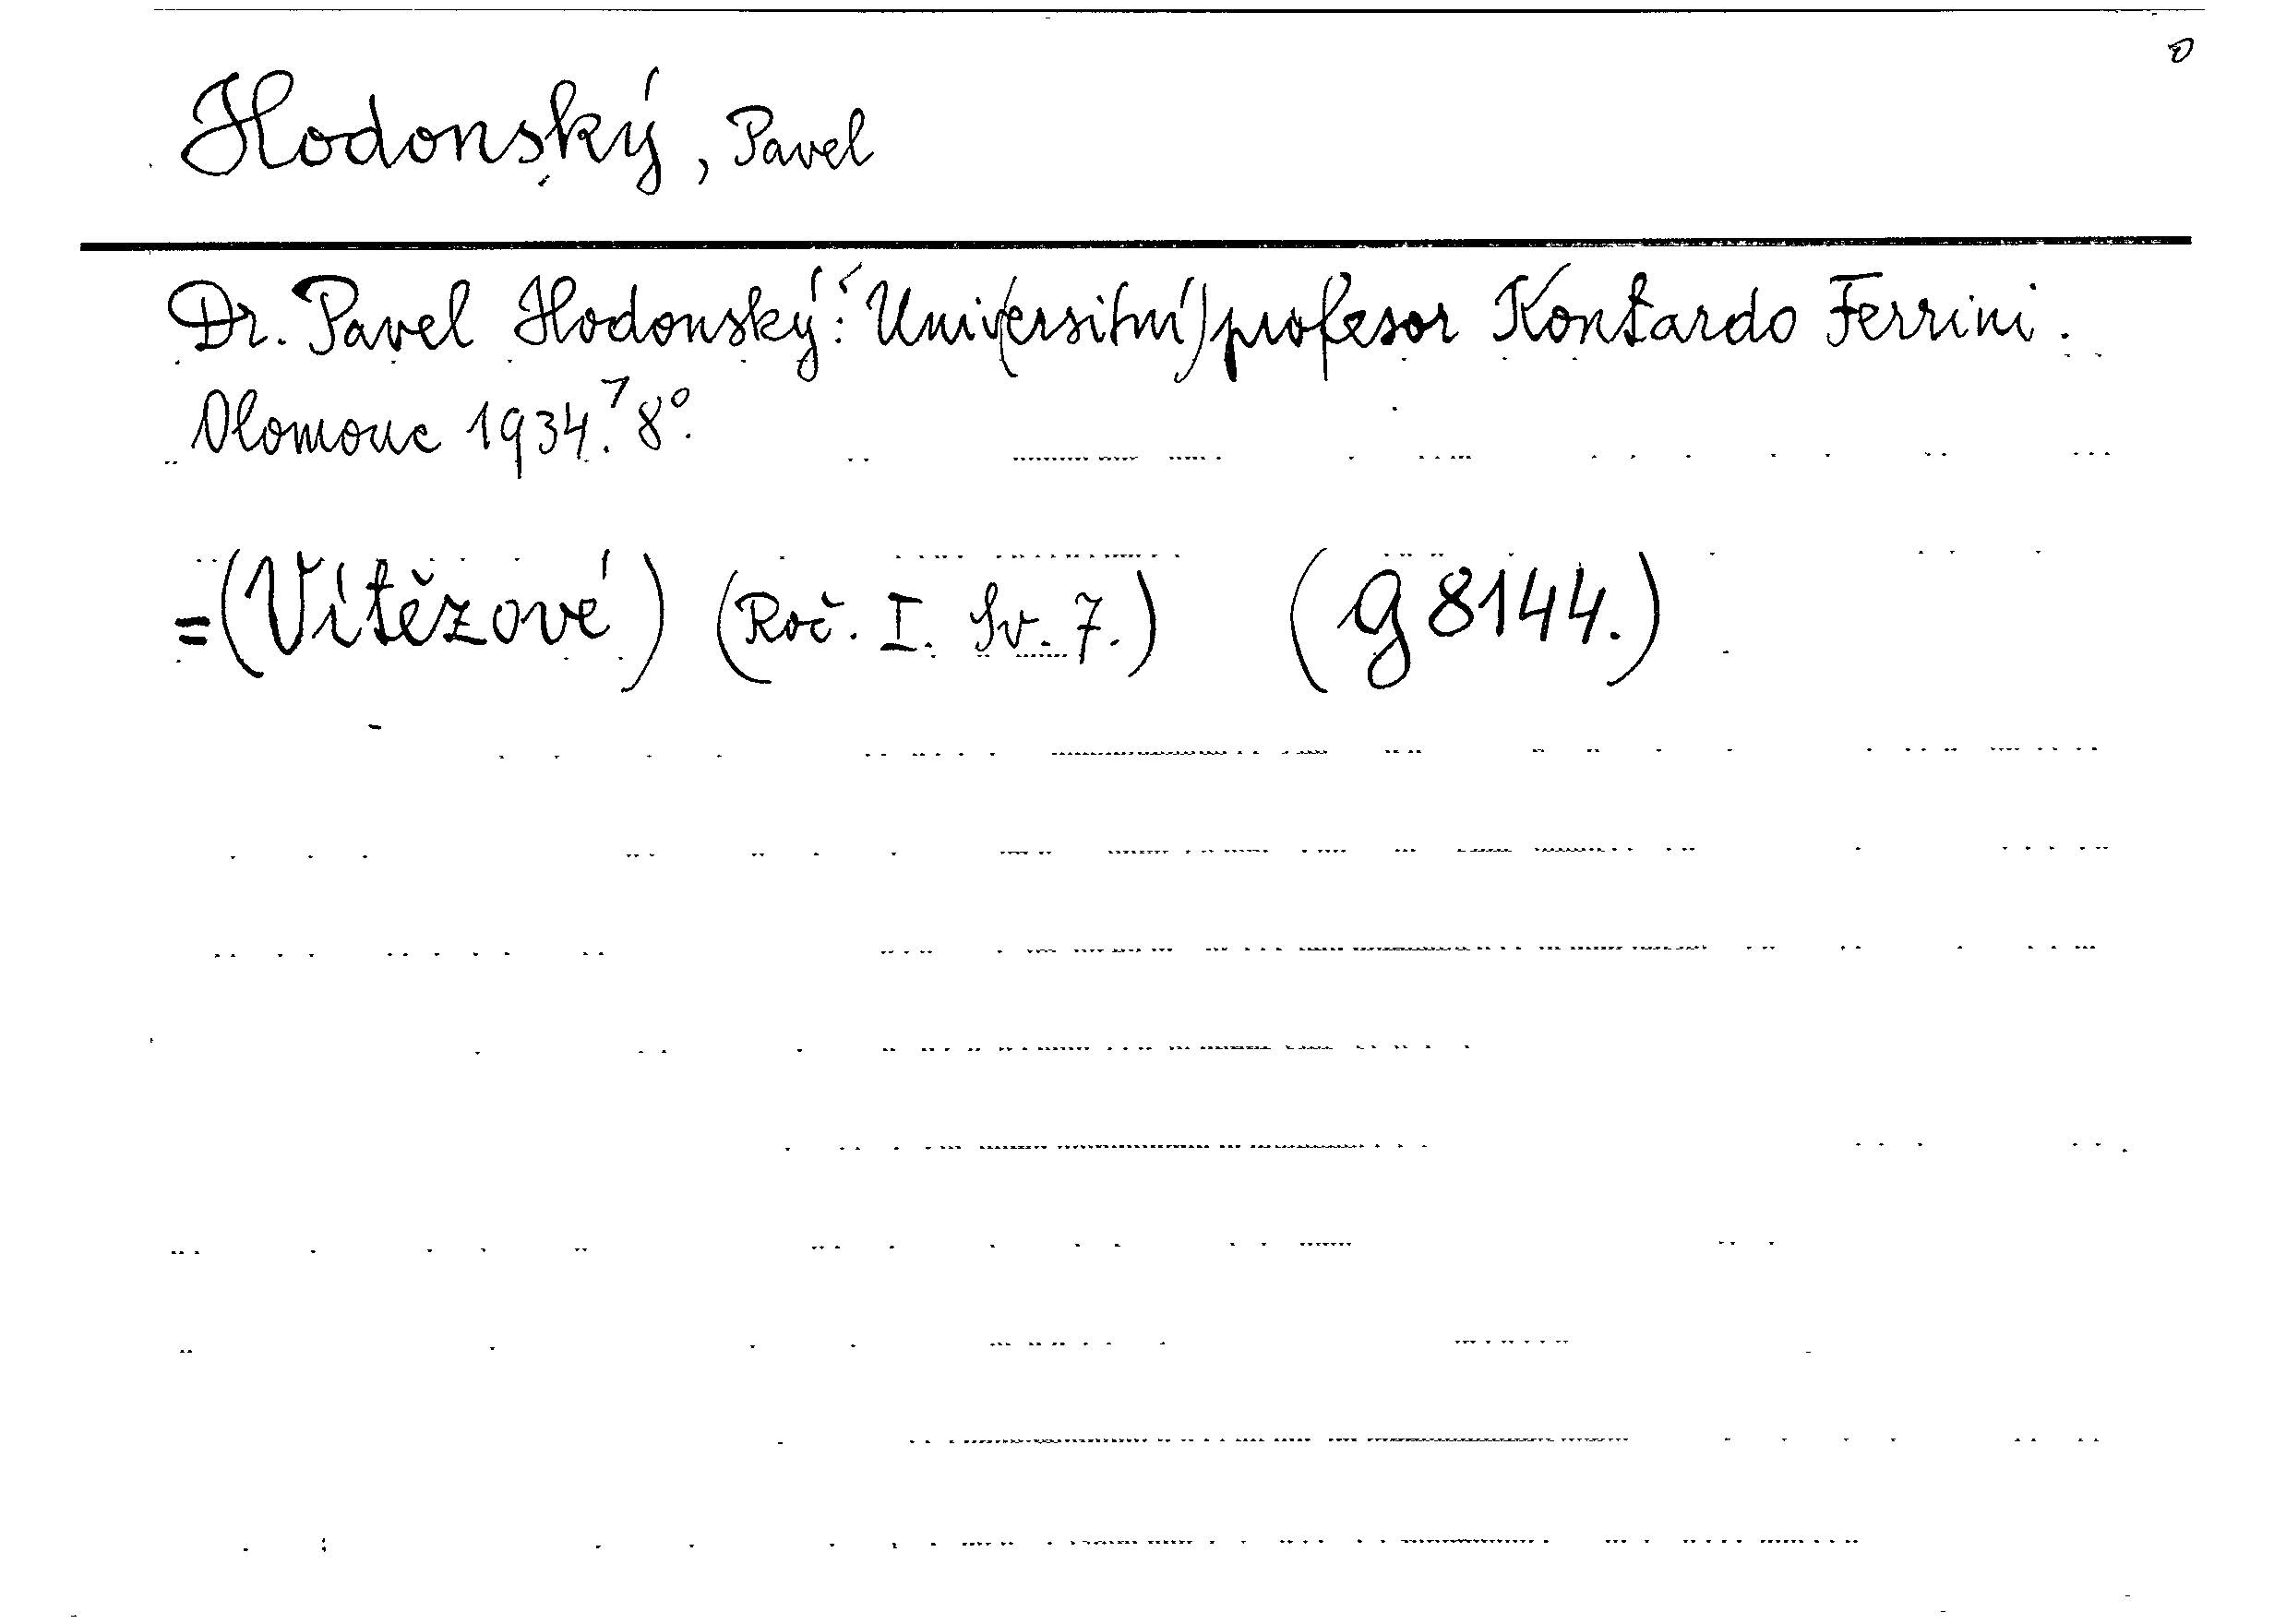 Hodonský, Pavel
Dr. Pavel Hodonský: Univ(ersitní) profesor Kontardo Ferrini.
Olomouc 1934.⁷ 8⁰.
=(Vítězové) (Roč. I. Sv. 7.) (g 8144.)